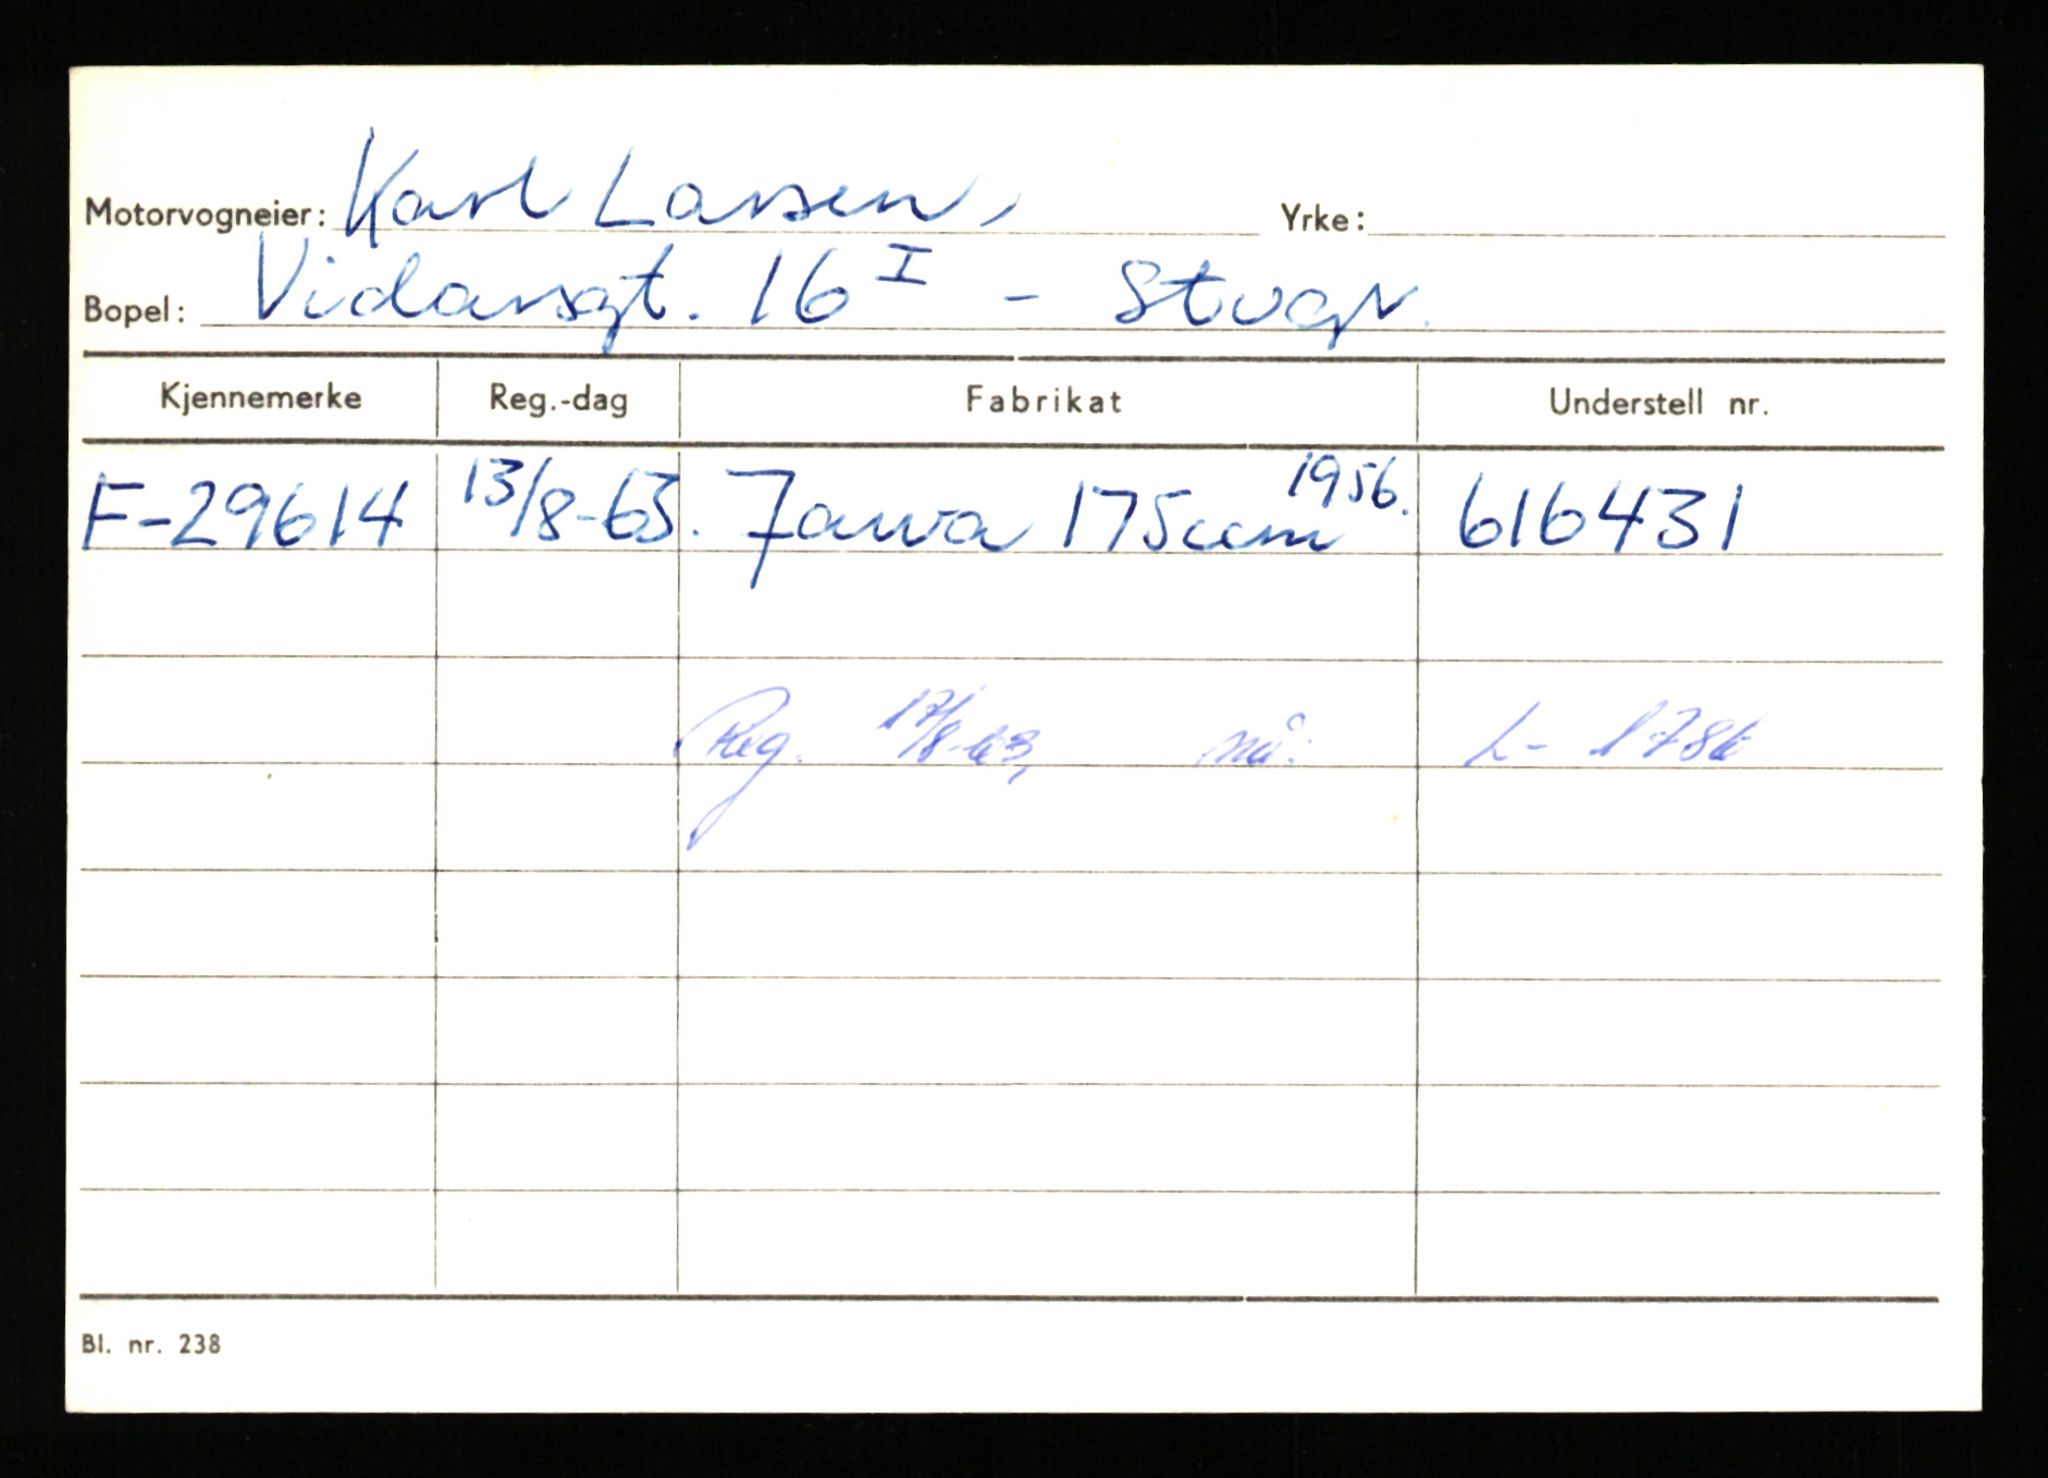 Motorvogneier: Karl Larsen, Yrke:
Bopel: Vidarsgt. 16 I - Stvgr.
Kjennemerke Reg.-dag Fabrikat Understell nr.
F-29614 13/8-63. Jawa 175ccm 1956. 616431
Reg. 17/8-63, nå: L- 1786
Bl. nr. 238